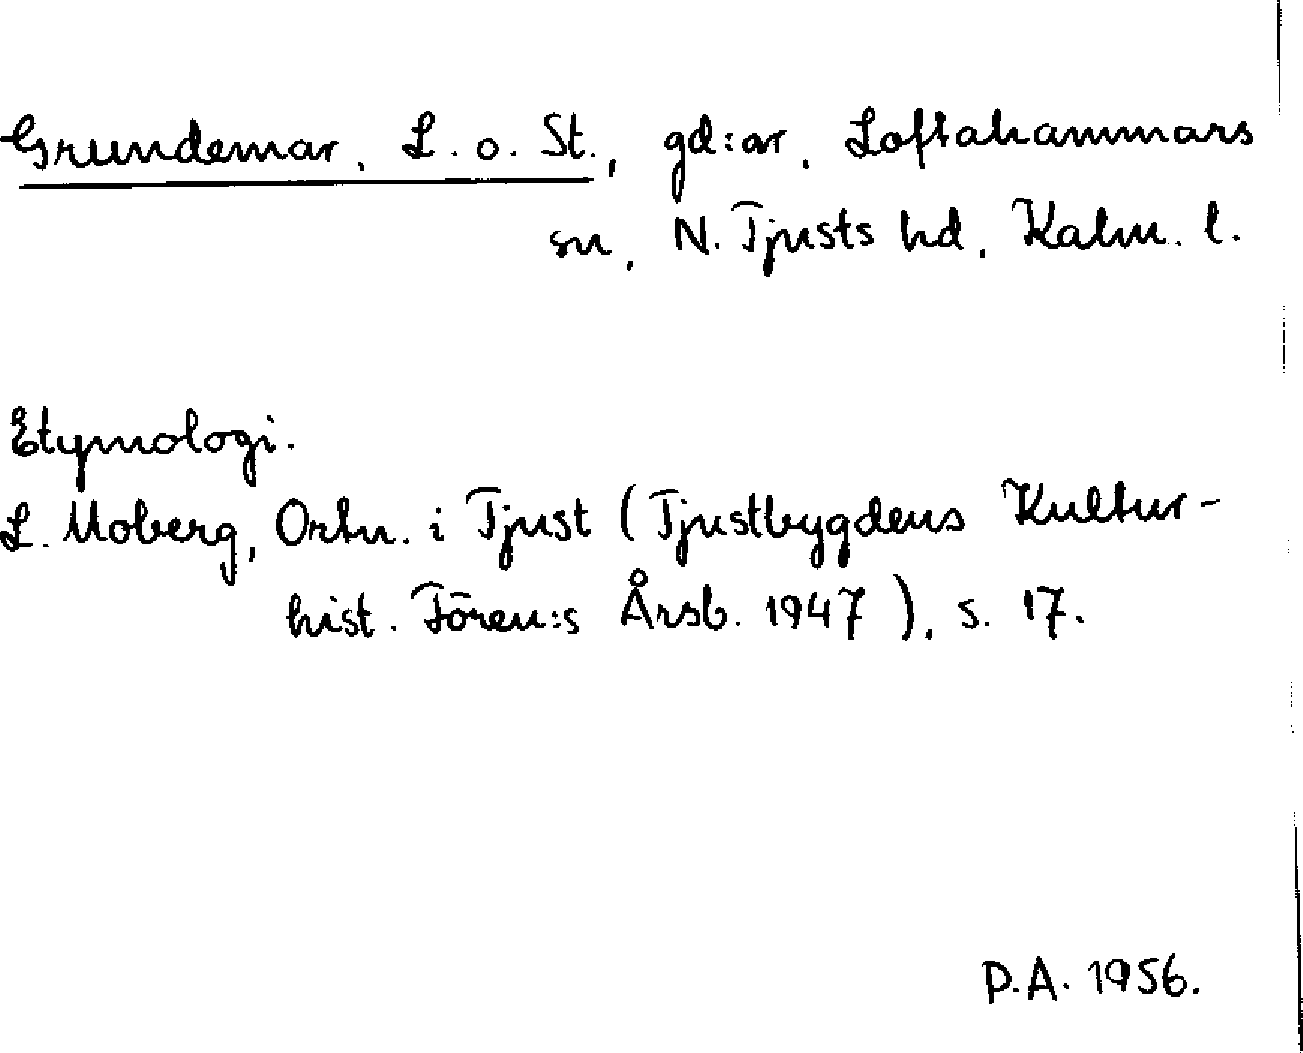 Grundemar, L. o. St., gd:ar, Loftahammars
sn, N. Tjusts hd, Kalm. l.
Etymologi.
L. Moberg, Ortn. i Tjust (Tjustbygdens Kultur-
hist. Fören:s Årsb. 1947), s. 17.
P.A. 1956.